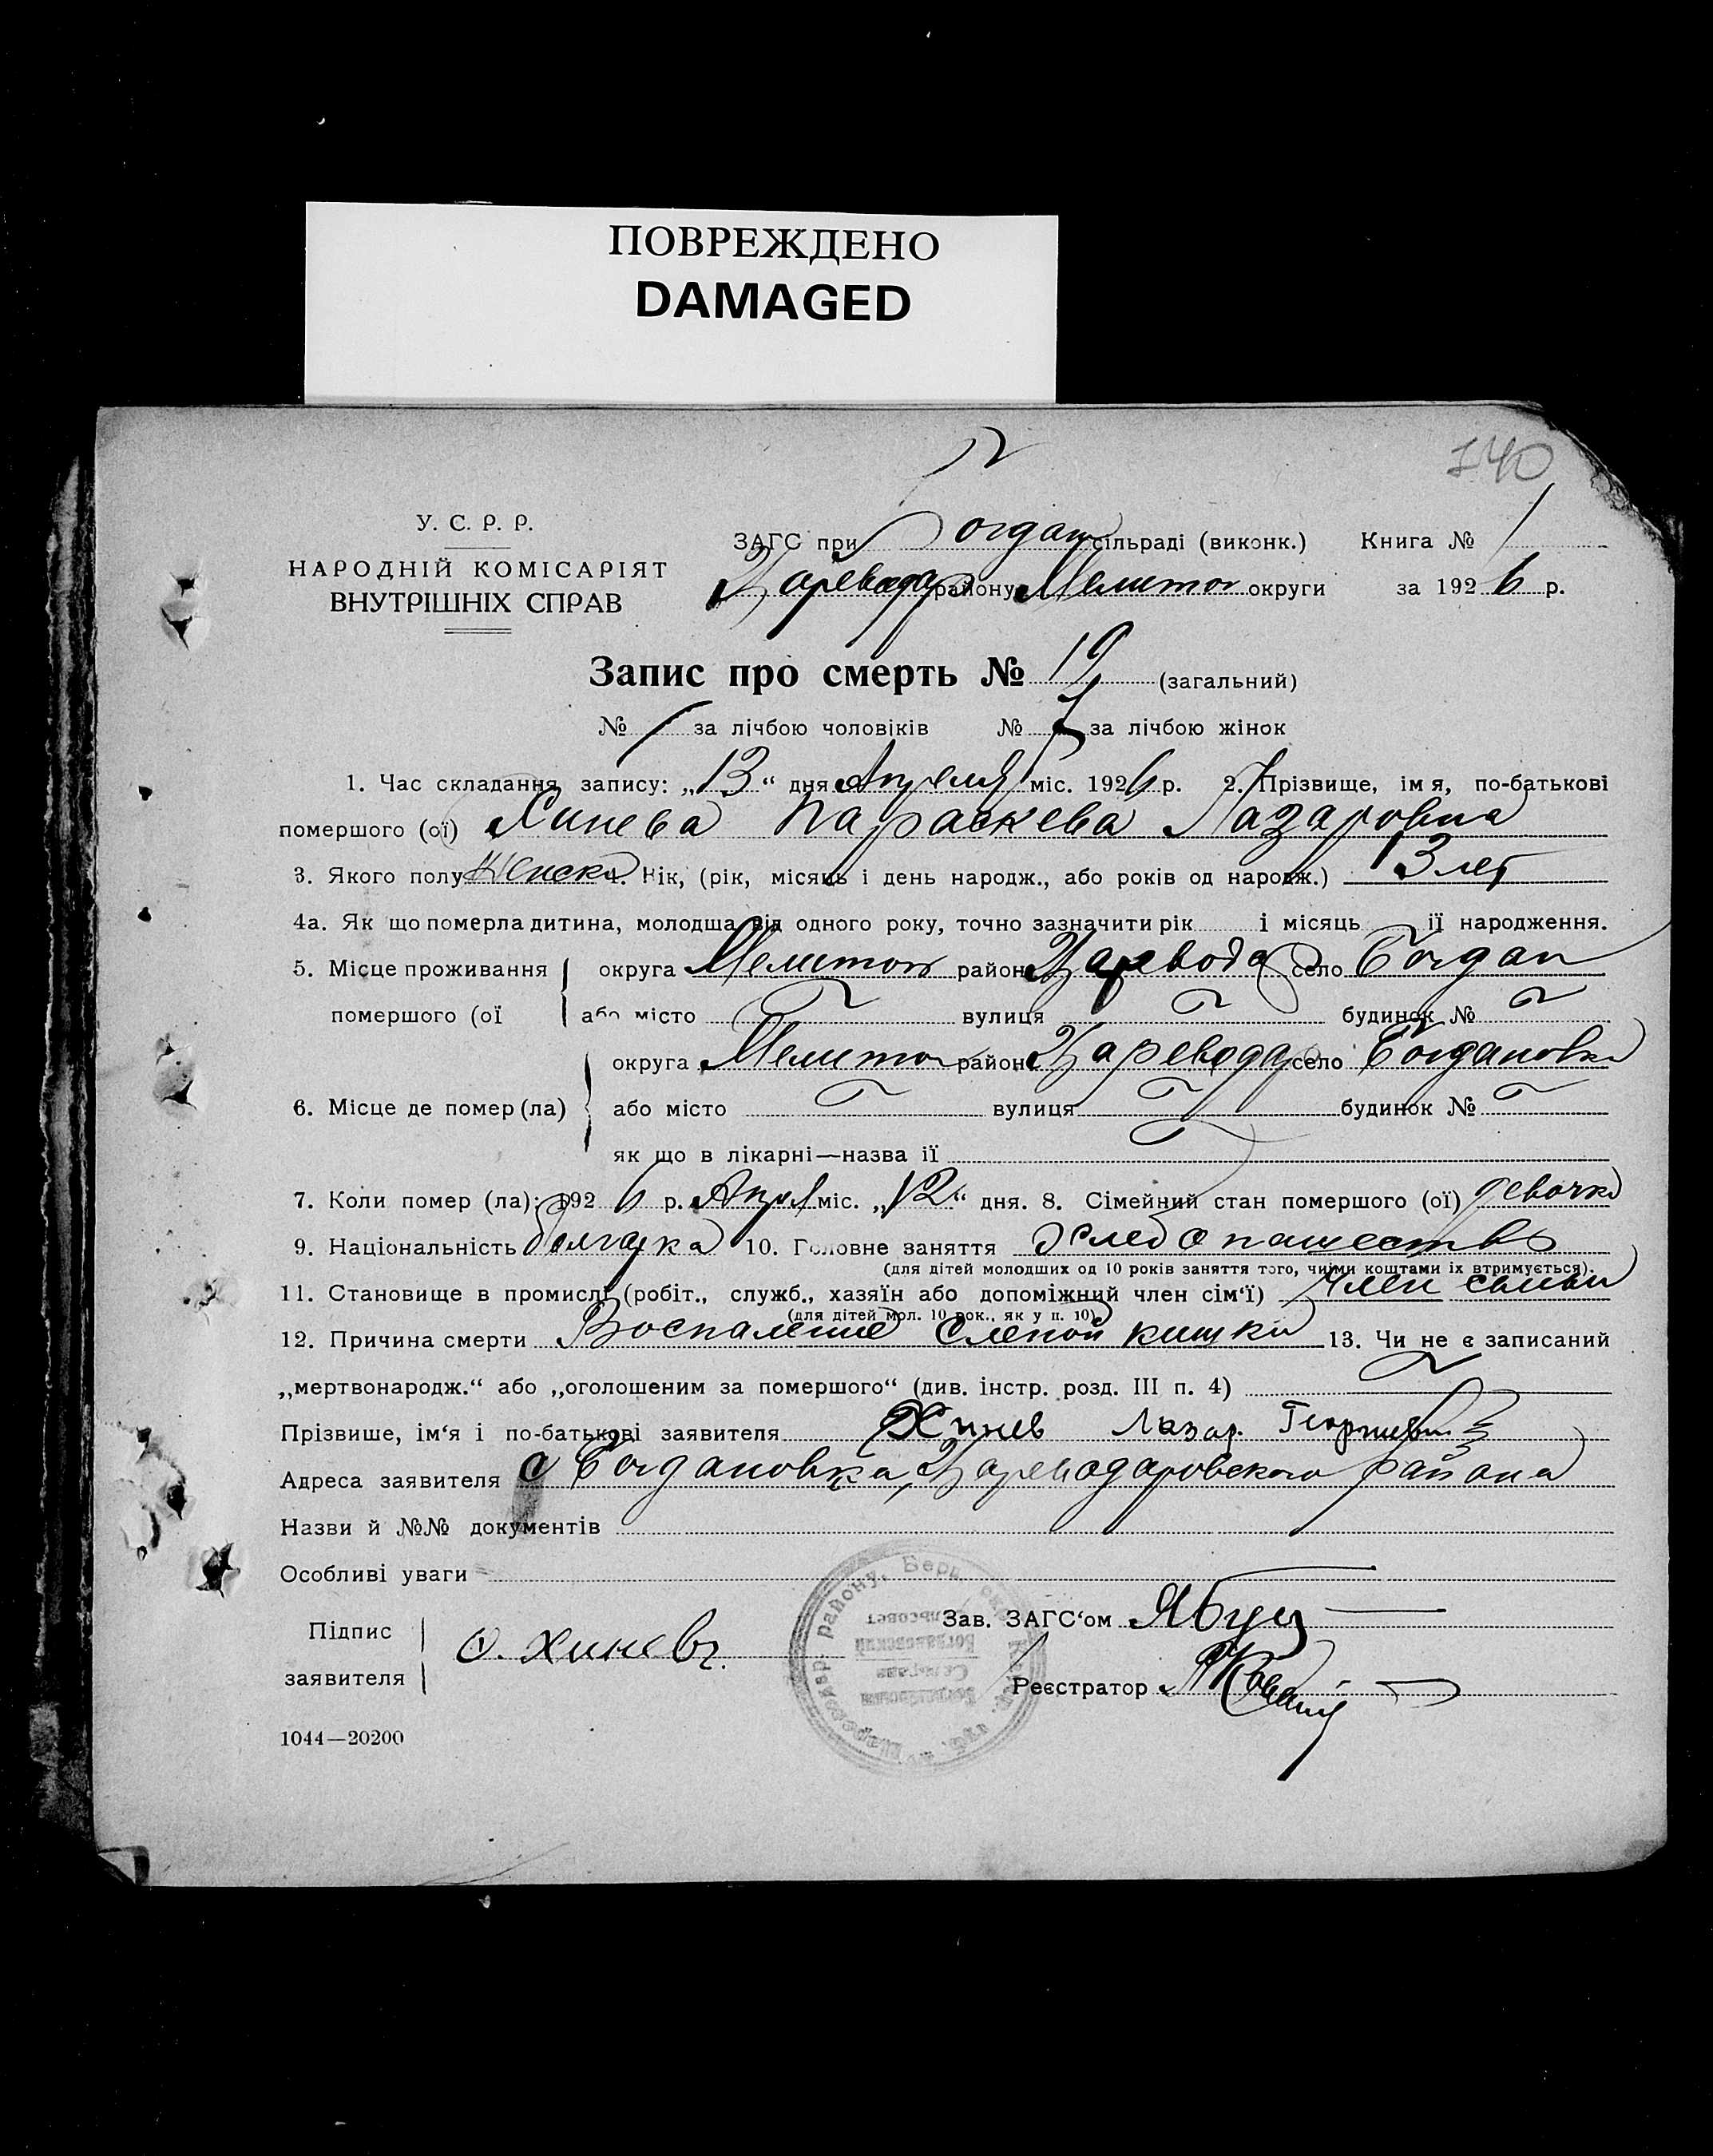 ПОВРЕЖДЕНО
DAMAGED
140
У. С. Р. Р.
НАРОДНІЙ КОМІСАРІЯТ
ВНУТРІШНІХ СПРАВ
ЗАГС при Богдан сільраді (виконк.) Книга № 1
Цареводар району Мелитоп округи за 1926 р.
Запис про смерть № 19 (загальний)
№ за лічбою чоловіків № 7 за лічбою жінок
1. Час складання запису: „13“ дня Апреля міс. 1926 р. 2. Прізвище, імя, по-батькові
помершого (ої) Хинева Параскева Лазаровна
3. Якого полу Женска 4. Вік, (рік, місяць і день народж., або років од народж.) 13 лет
4а. Як що померла дитина, молодша від одного року, точно зазначити рік і місяць ії народження.
5. Місце проживання округа Мелитоп район Царевода село Богдан
помершого (ої або місто вулиця будинок №
округа Мелитоп район Цареводар село Богдановка
6. Місце де помер (ла) або місто вулиця будинок №
як що в лікарні—назва ії
7. Коли помер (ла): 1926 р. Апрл міс. „12“ дня. 8. Сімейний стан помершого (ої) девочка
9. Національність болгарка 10. Головне заняття Хлебопашество
(для дітей молодших од 10 років заняття того, чиїми коштами їх втримується).
11. Становище в промислі (робіт., служб., хазяїн або допоміжний член сім‘ї) Член семьи
(для дітей мол. 10 рок., як у п. 10)
12. Причина смерти Воспаление слепой кишки 13. Чи не є записаний
„мертвонародж.“ або „оголошеним за помершого“ (див. інстр. розд. III п. 4)
Прізвише, ім‘я і по-батькові заявителя Хинев Лазар. Георгиевич
Адреса заявителя с Богдановка, Цареводаровского района
Назви й №№ документів
Особливі уваги
Підпис
заявителя
Хиневъ.
Зав. ЗАГС‘ом
Реєстратор
1044—20200